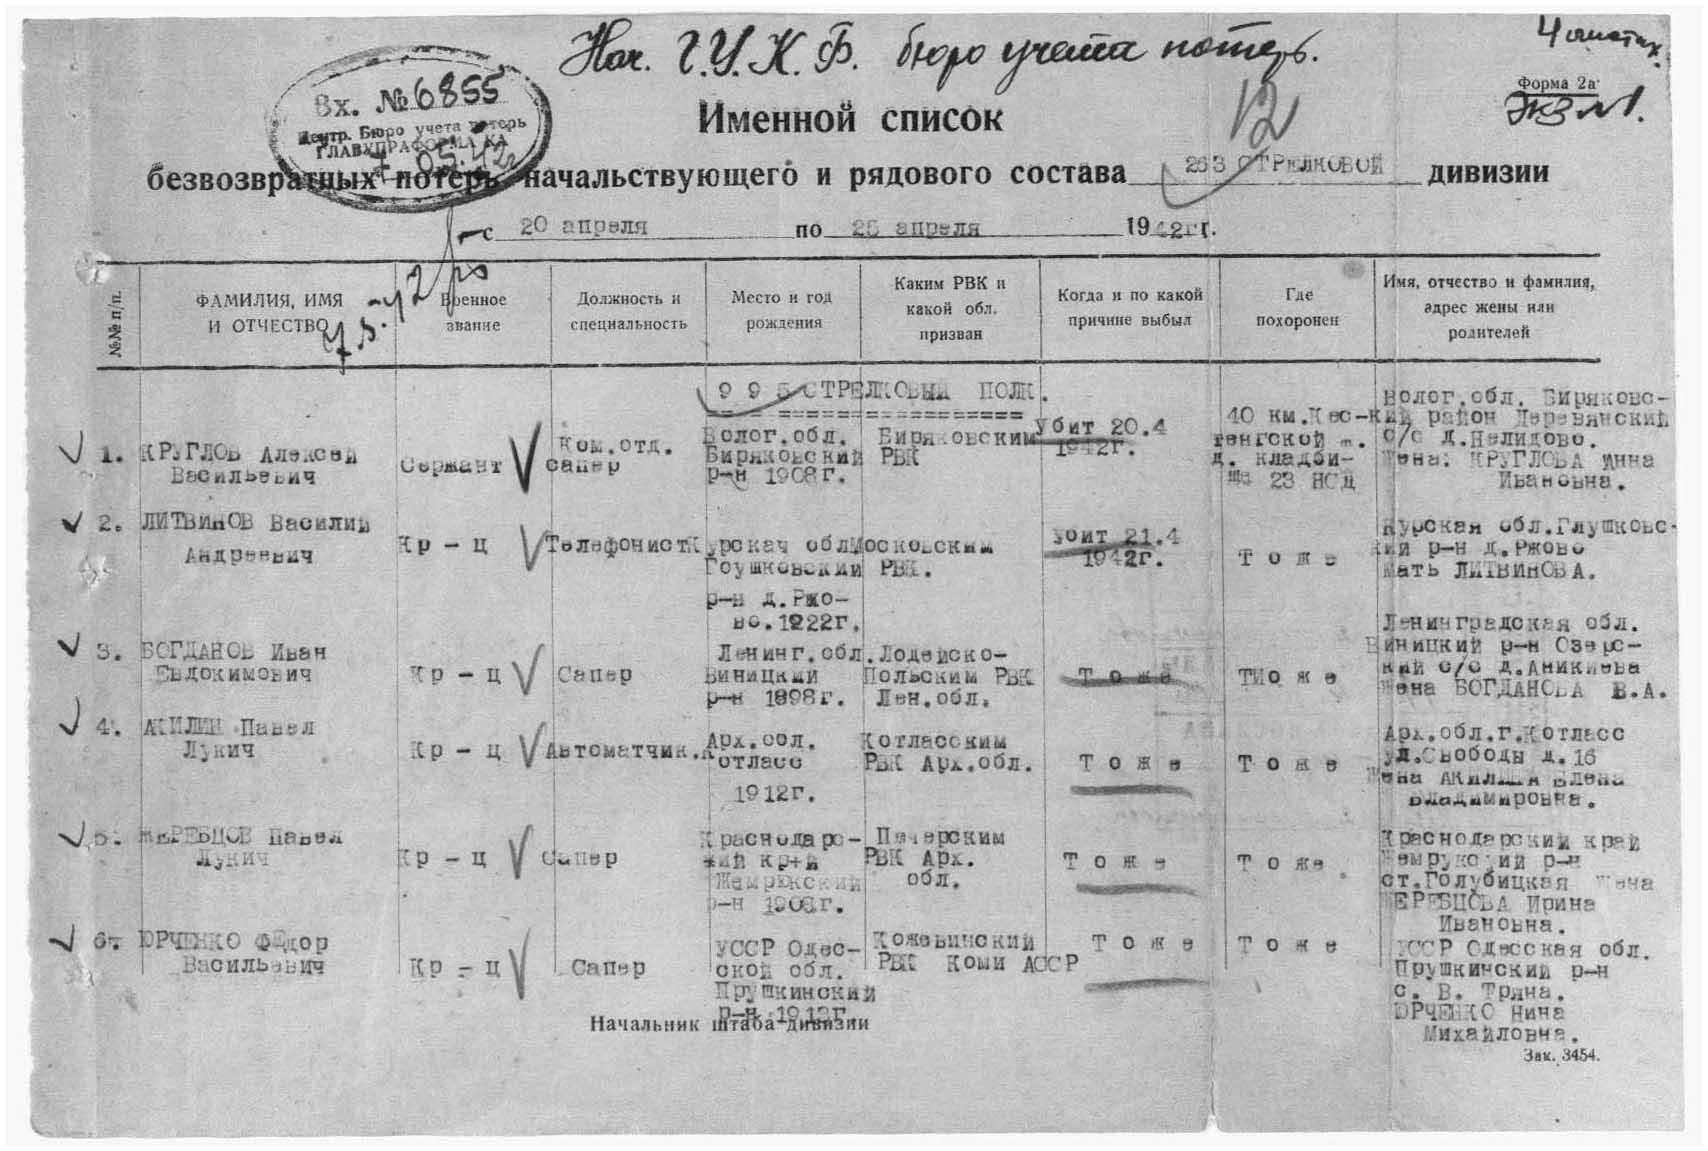 Нач. Г.У.К.Ф. бюро учета потерь.
Форма 2а
Экз №1.
Вх. № 6855
Центр. Бюро учета потерь
ГЛАВУПРАФОРМА КА
7.05.42г
12
Именной список
безвозвратных потерь начальствующего и рядового состава 263 СТРЕЛКОВОЙ дивизии
с 20 апреля по 25 апреля 1942гг.
№№ п/п.
ФАМИЛИЯ, ИМЯ
И ОТЧЕСТВО
Военное
звание
Должность и
специальность
Место и год
рождения
Каким РВК и
какой обл.
призван
Когда и по какой
причине выбыл
Где
похоронен
Имя, отчество и фамилия,
адрес жены или
родителей
995 СТРЕЛКОВЫЙ ПОЛК.
===================
1.
КРУГЛОВ Алексей
Васильевич
Сержант
Ком.отд.
сапер
Волог.обл.
Биряковский
р-н 1908г.
Биряковским
РВК
Убит 20.4
1942г.
40 км.Кес-
тенгской
д. кладби-
ще 23 НСД
Волог.обл. Биряковс-
кий район Деревянский
с/с д.Нелидово.
Жена: КРУГЛОВА Анна
Ивановна.
2.
ЛИТВИНОВ Василий
Андреевич
Кр-ц
Телефонист
Курская обл
Гоушковский
р-н д.Ржо-
во.1922г.
Московским
РВК.
Убит 21.4
1942г.
Тоже
Курская обл.Глушковс-
кий р-н д.Ржово
Мать ЛИТВИНОВА.
3.
БОГДАНОВ Иван
Евдокимович
Кр-ц
Сапер
Ленинг.обл.
Виницкий
р-н 1898г.
Лодейско-
Польским РВК
Лен.обл.
Тоже
ТИоже
Ленинградская обл.
Виницкий р-н Озерс-
кий с/с д.Аникиева
Жена БОГДАНОВА В.А.
4.
АКИЛИН Павел
Лукич
Кр-ц
Автоматчик.
Арх.обл.
Котласс
1912г.
Котласским
РВК Арх.обл.
Тоже
Тоже
Арх.обл.г.Котласс
ул.Свободы д.16
Жена АКИЛИНА Елена
Владимировна.
5.
ЖЕРЕБЦОВ Павел
Лукич
Кр-ц
Сапер
Краснодарс-
кий кр+й
Жемрюкский
р-н 1908г.
Печерским
РВК Арх.
обл.
Тоже
Тоже
Краснодарский край
Жемрукский р-н
ст.Голубицкая Жена
ЖЕРЕБЦОВА Ирина
Ивановна.
6.
ЮРЧЕНКО Федор
Васильевич
Кр-ц
Сапер
УССР Одес-
ской обл.
Прушкинский
р-н 1913г.
Кожевинский
РВК Коми АССР
Тоже
Тоже
УССР Одесская обл.
Прушкинский р-н
с. В. Тряна.
ЮРЧЕНКО Нина
Михайловна.
Начальник штаба дивизии
Зак. 3454.